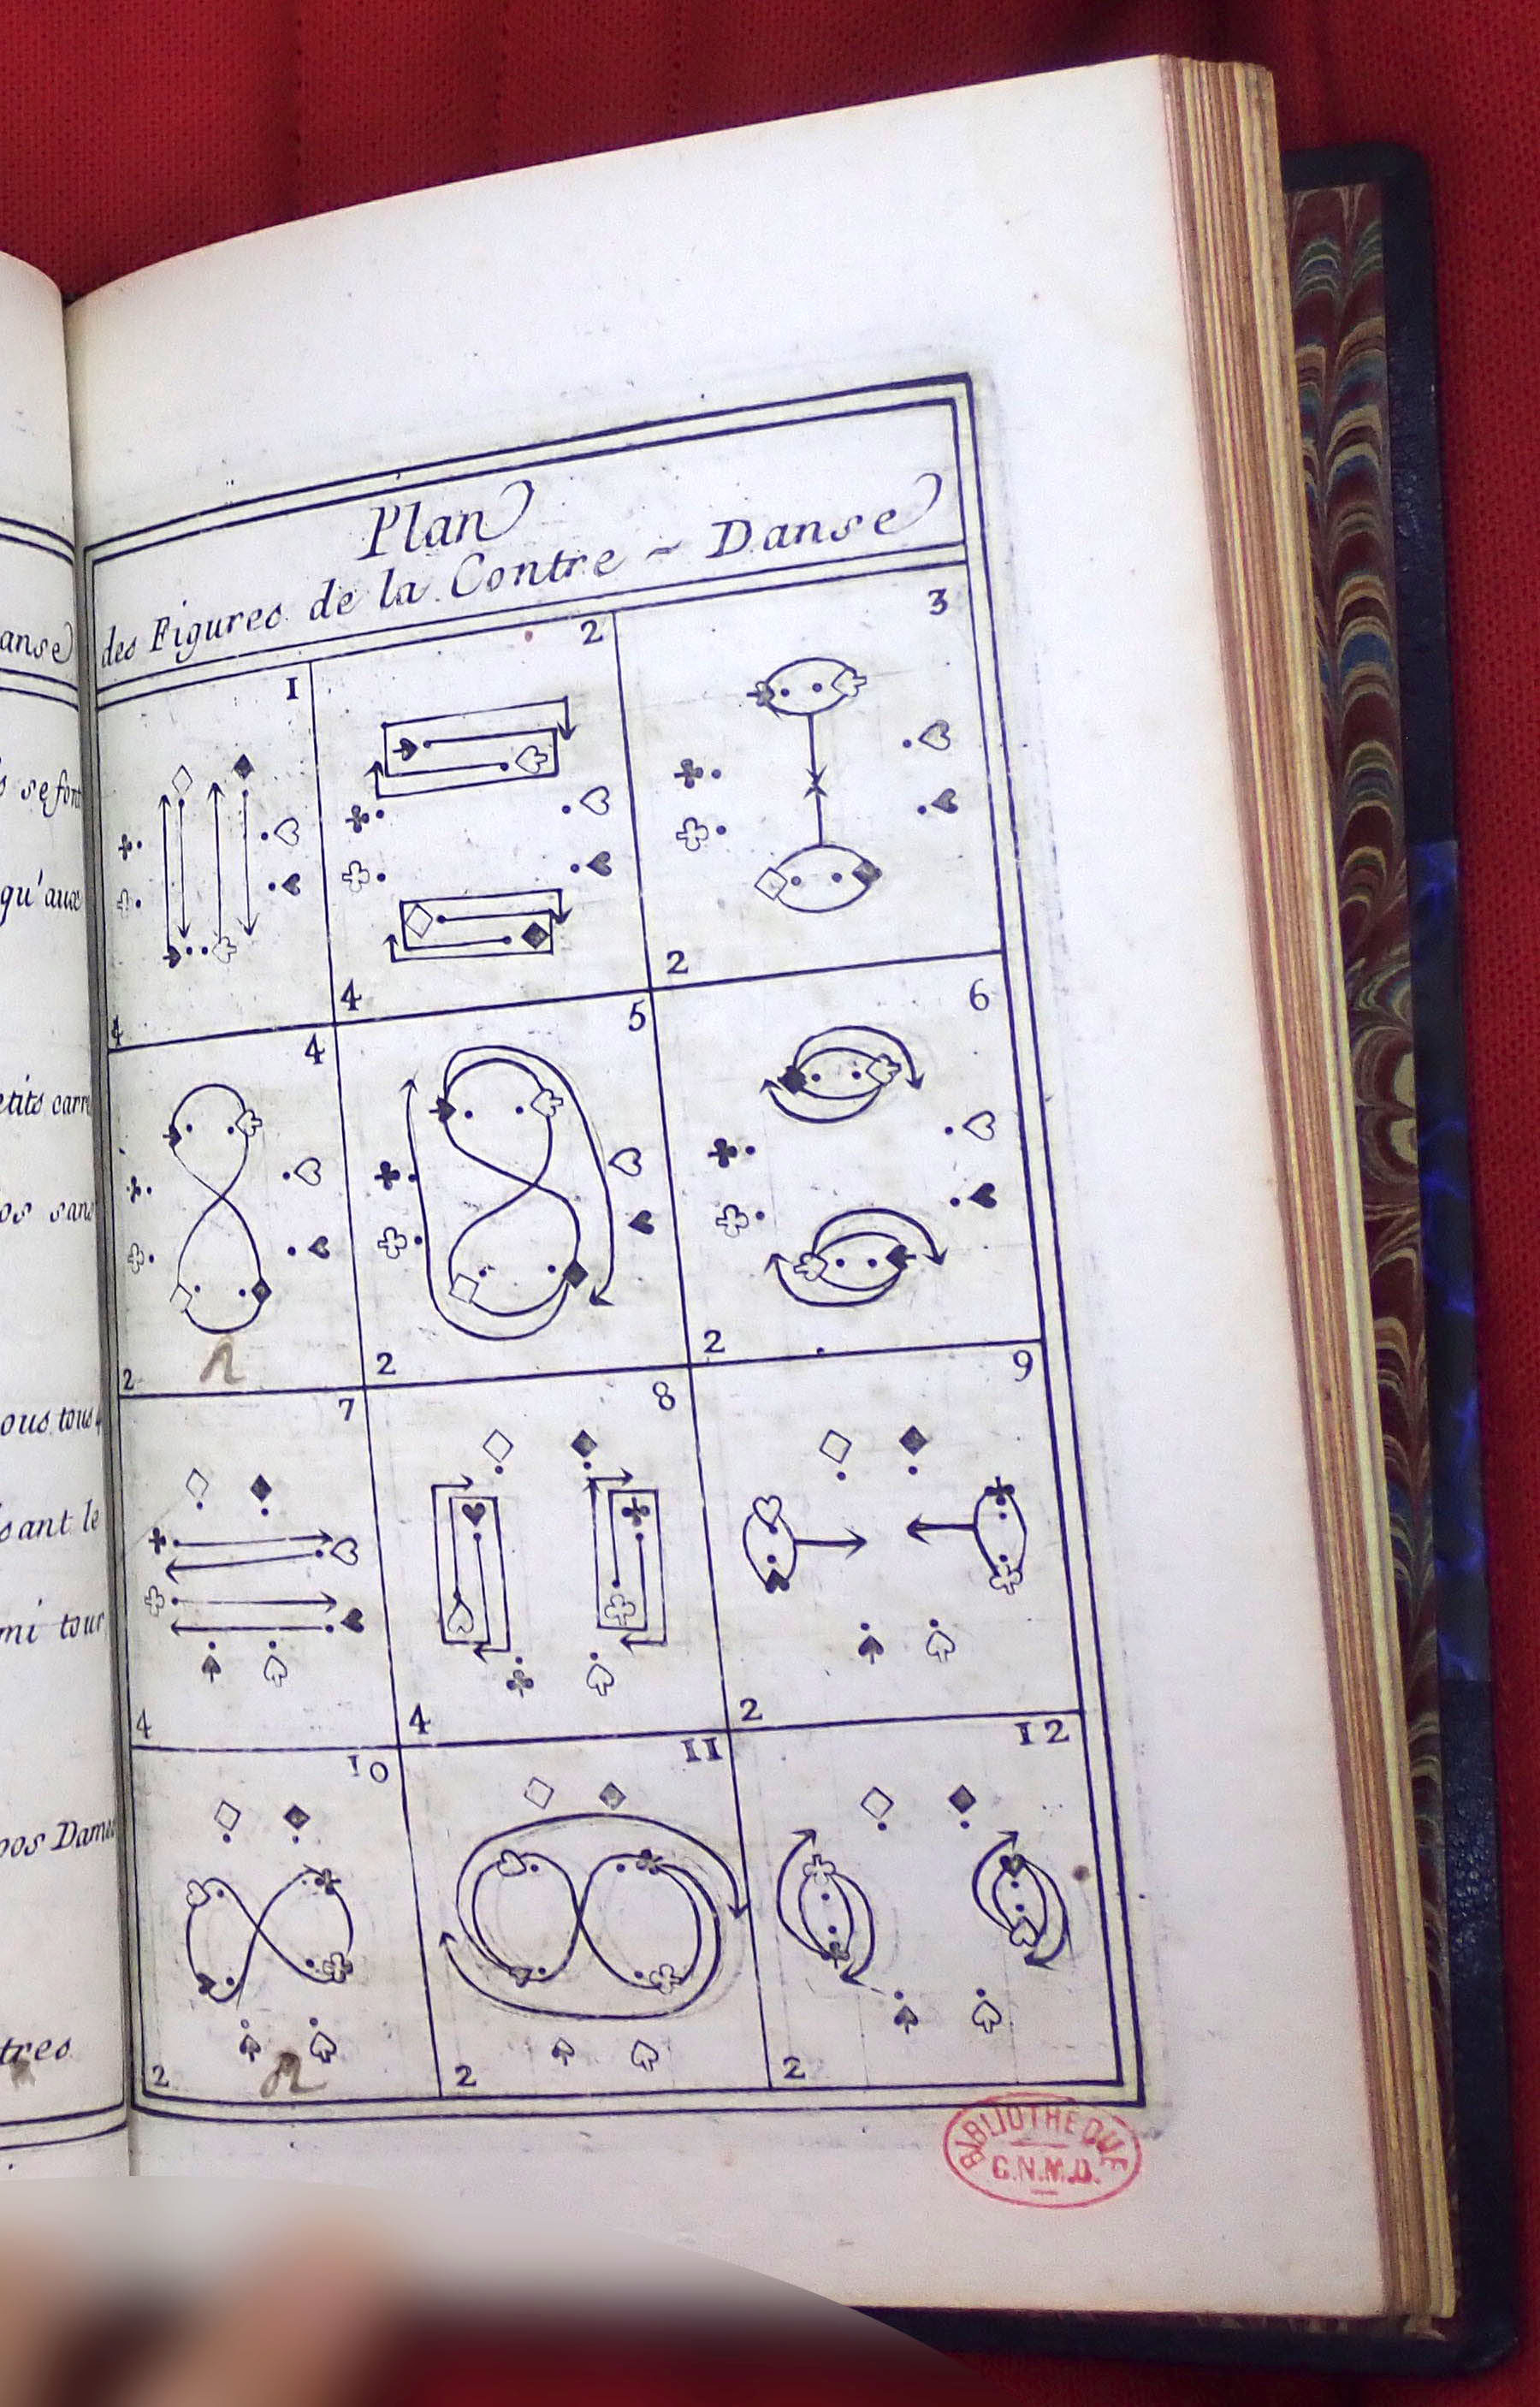 anse
s se font
qu'aux
etits carré
os sans
ous tous
sant le
mi tour
vos Dames
tres
Plan
des Figures de la Contre - Danse
1
2
3
4
4
2
4
5
6
2
2
2
7
8
9
4
4
2
10
11
12
2
2
2
BIBLIOTHEQUE
C.N.M.D.